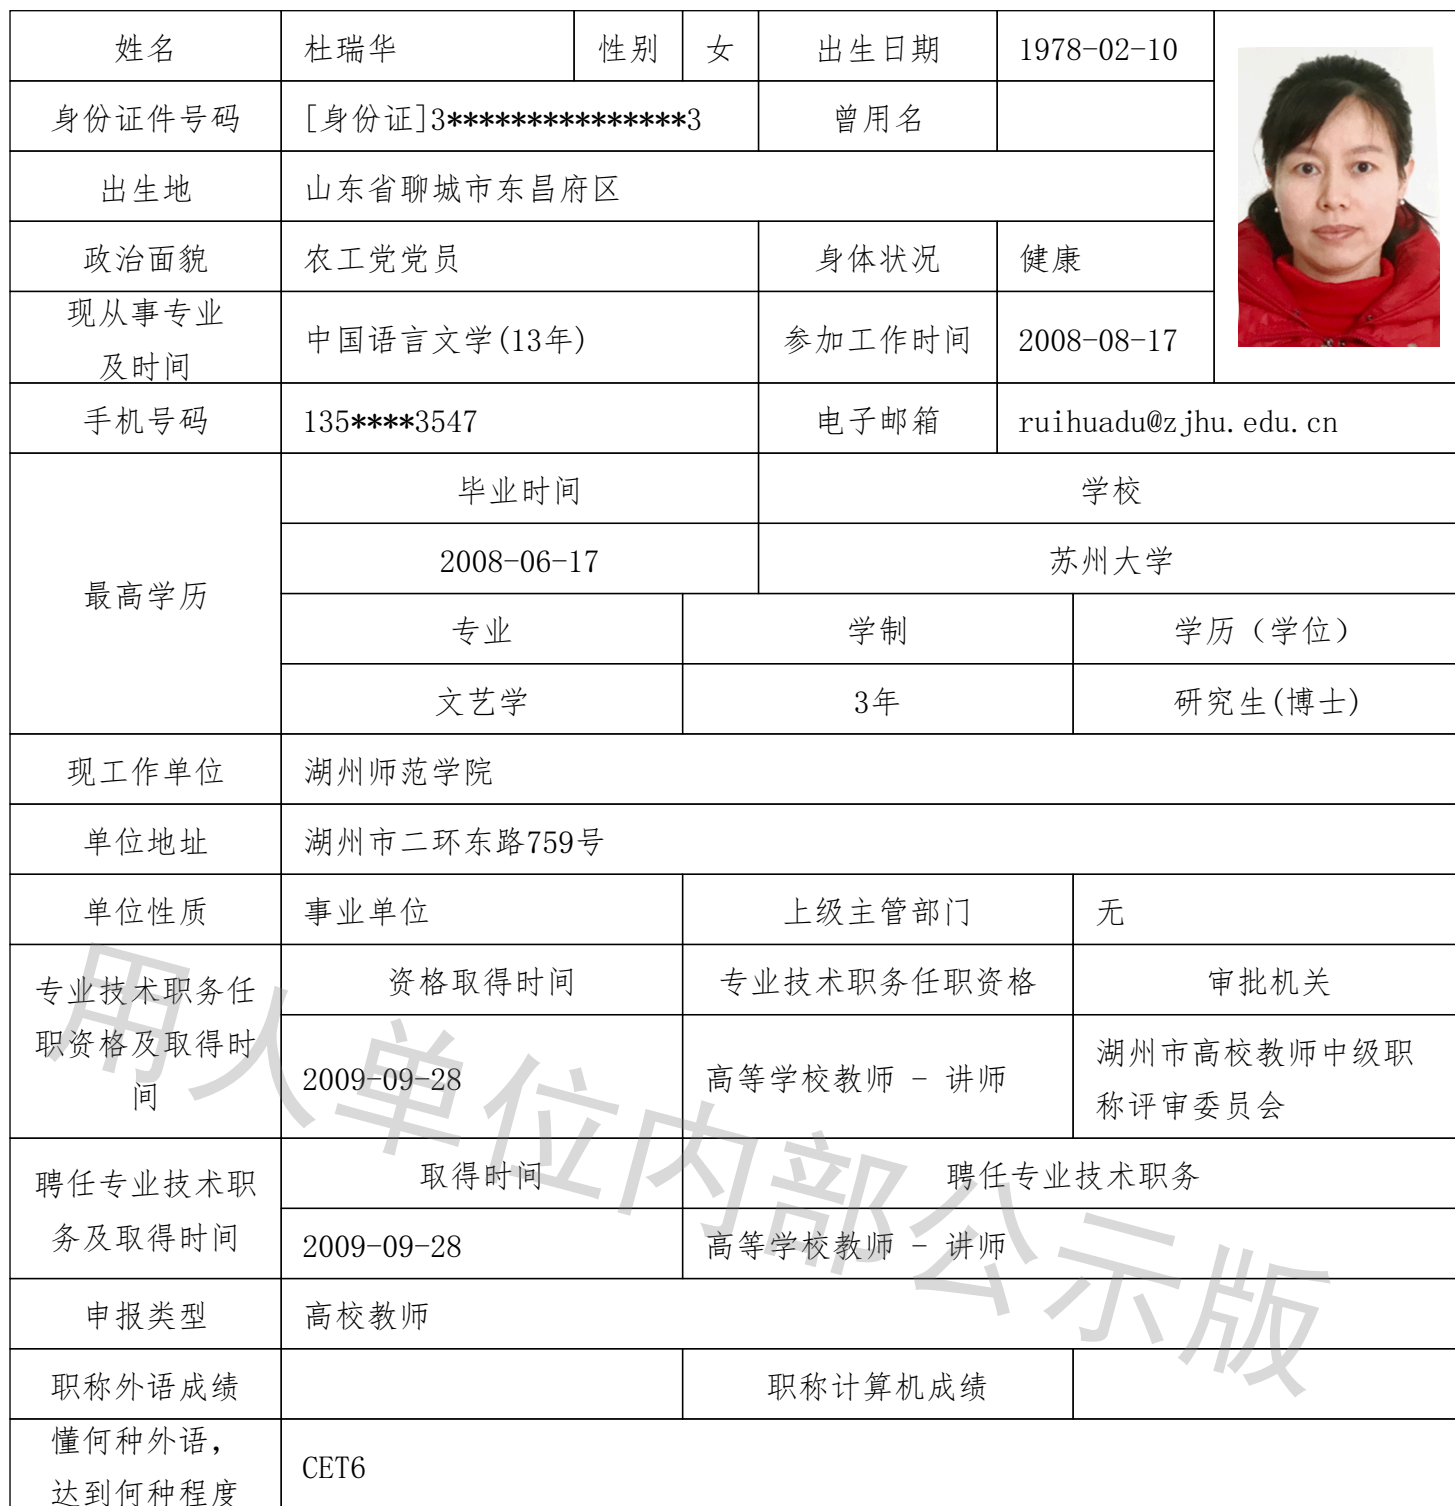 姓名 杜瑞华 性别 女 出生日期 1978-02-10
身份证件号码 [身份证]3***************3 曾用名
出生地 山东省聊城市东昌府区
政治面貌 农工党党员 身体状况 健康
现从事专业
及时间
中国语言文学(13年) 参加工作时间 2008-08-17
手机号码 135****3547 电子邮箱 ruihuadu@zjhu.edu.cn
最高学历
毕业时间 学校
2008-06-17 苏州大学
专业 学制 学历（学位）
文艺学 3年 研究生(博士)
现工作单位 湖州师范学院
单位地址 湖州市二环东路759号
单位性质 事业单位 上级主管部门 无
专业技术职务任
职资格及取得时
间
资格取得时间 专业技术职务任职资格 审批机关
2009-09-28 高等学校教师 - 讲师
湖州市高校教师中级职
称评审委员会
聘任专业技术职
务及取得时间
取得时间 聘任专业技术职务
2009-09-28 高等学校教师 - 讲师
申报类型 高校教师
职称外语成绩 职称计算机成绩
懂何种外语，
达到何种程度
CET6
用人单位内部公示版